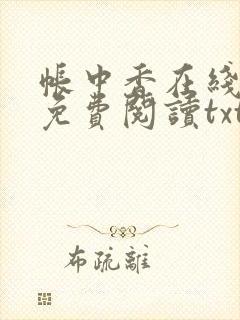 帳中香在綫
免費閱讀txt
布疏離